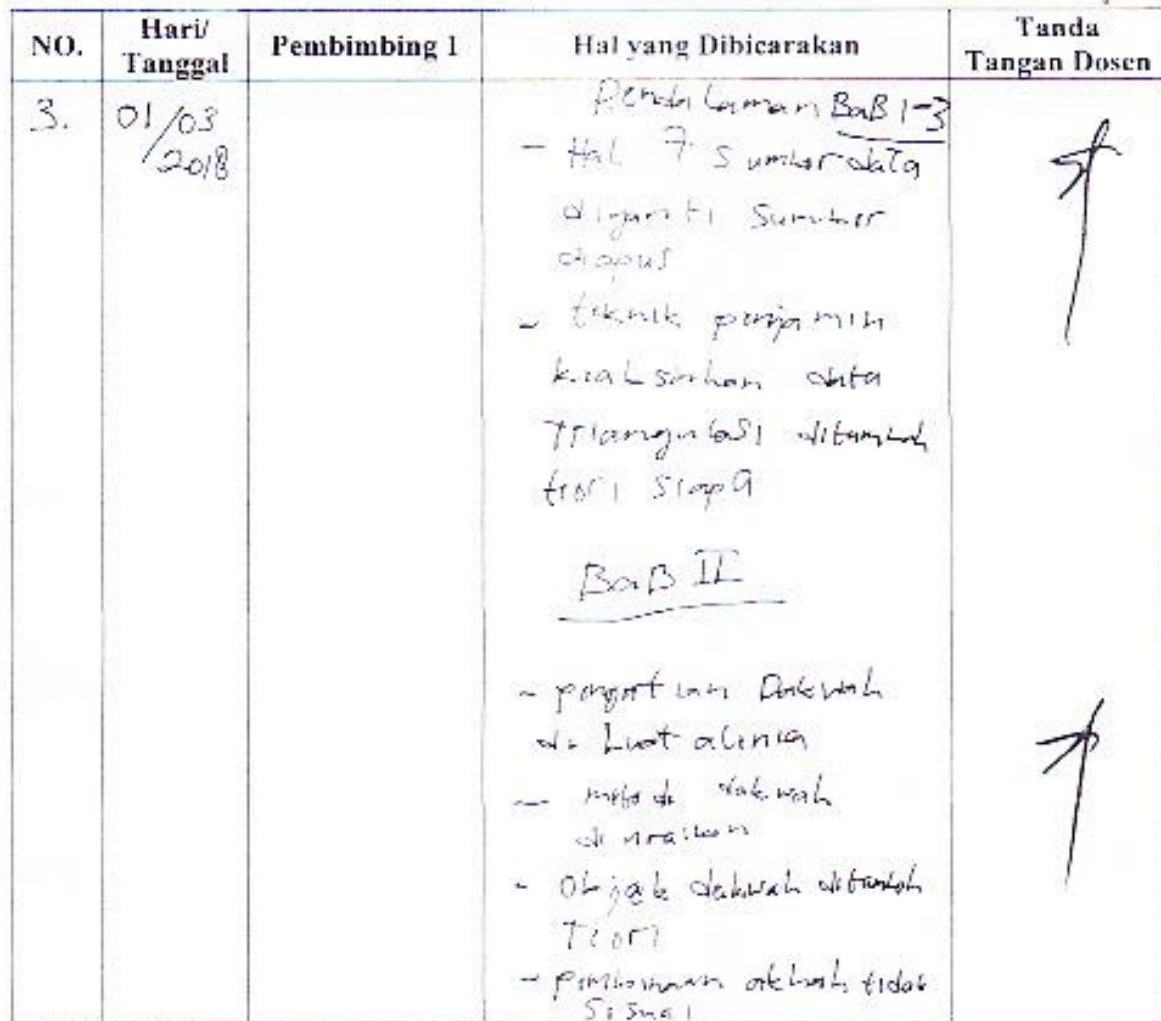 NO.
Hari/
Tanggal
Pembimbing 1
Hal yang Dibicarakan
Tanda
Tangan Dosen
3.
01/03
2018
Pendalaman BaB 1-3
- Hal 7 Sumber data
diganti Sumber
dihapus
- teknik penjamin
keabsahan data
Triangulasi ditambah
teori siapa
BaB II
- pengertian Dakwah
di buat alenia
- metode dakwah
di uraikan
- Objek dakwah ditambah
Teori
- pembinaan akhlak tidak
Sesuai